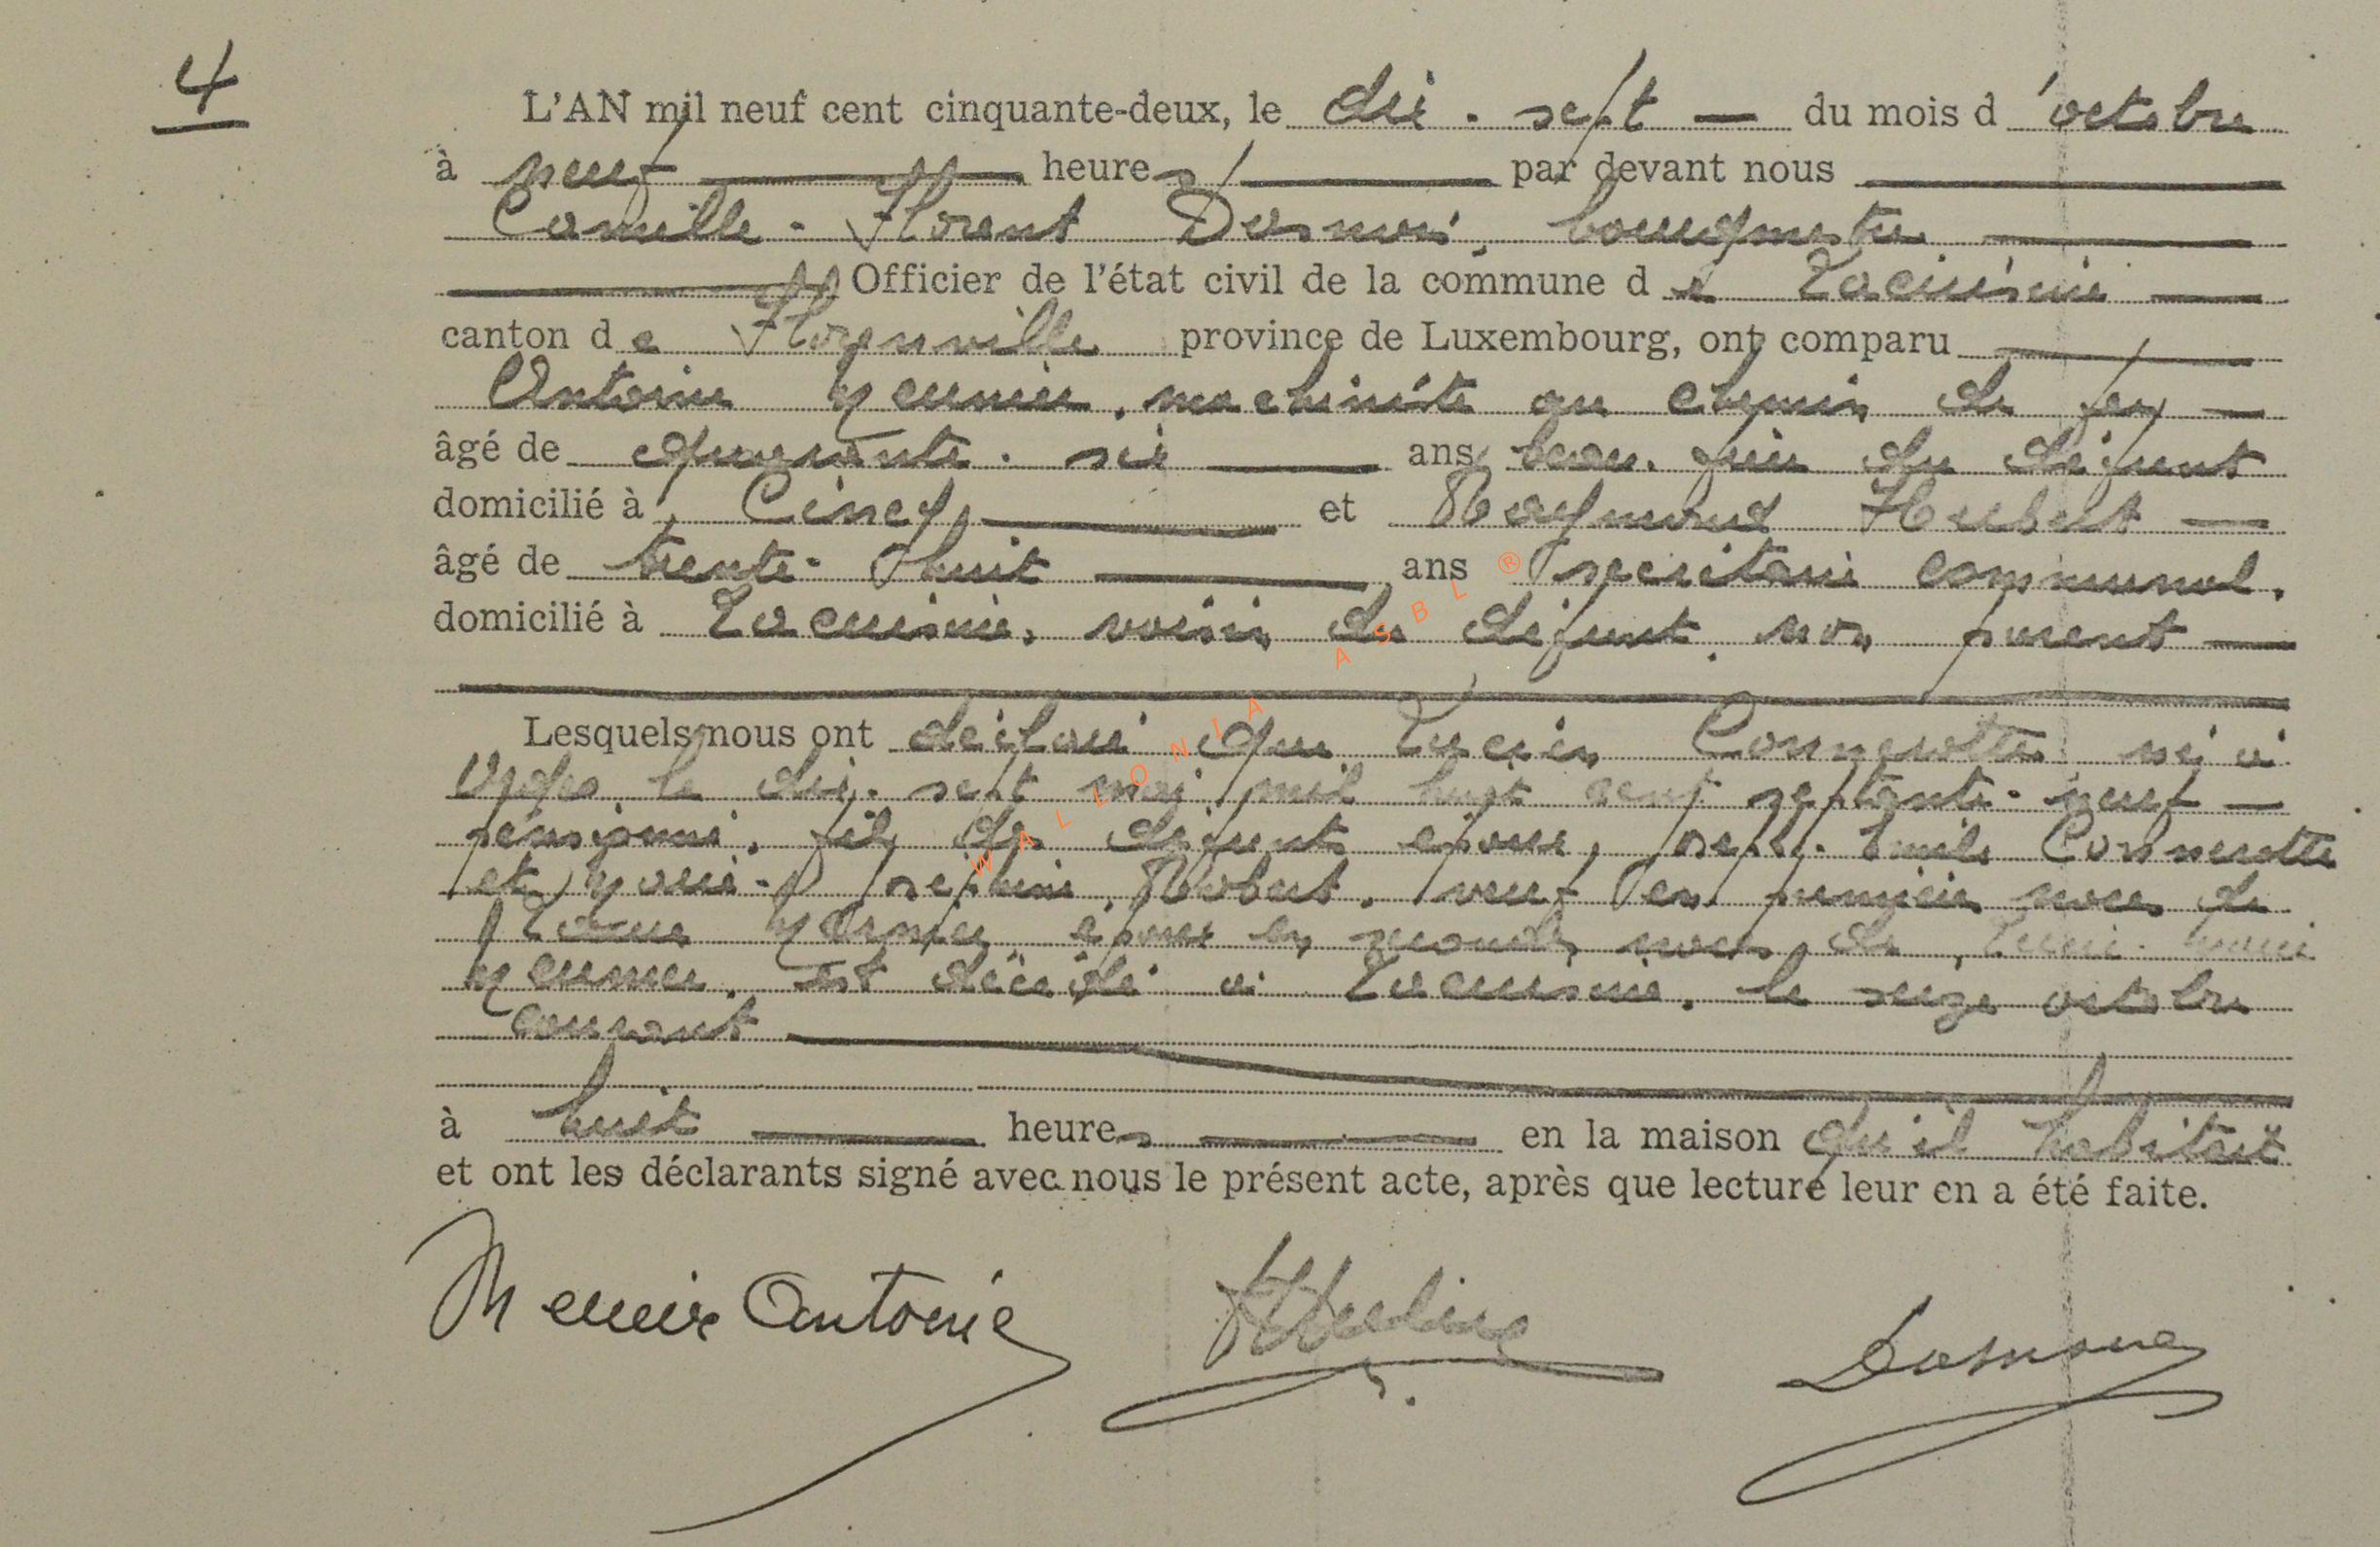 4
L'AN mil neuf cent cinquante-deux, le dix-sept du mois d'octobre
à neuf heures, par devant nous
Camille-Florent Dasnois, bourgmestre
Officier de l'état civil de la commune de Lacuisine
canton de Florenville province de Luxembourg, ont comparu
Antoine Meunier, machiniste au chemin de fer
âgé de quarante-six ans, beau-frère du défunt
domicilié à Ciney, et Raymond
âgé de trente-huit ans, secrétaire communal,
domicilié à Lacuisine, voisin du défunt, non parent
Lesquels nous ont déclaré que Lucien Connerotte, né à
le dix-sept mai mil huit cent septante-neuf
pensionné, fils des défunts époux, Joseph-Emile Connerotte
et Marie-Joséphine Robert, veuf en premières noces de
époux en secondes noces de
Meunier, est décédé à Lacuisine, le seize octobre
courant
à huit heures en la maison qu'il habitait
et ont les déclarants signé avec nous le présent acte, après que lecture leur en a été faite.
Meunier Antoine
WALLONIA ASBL ®